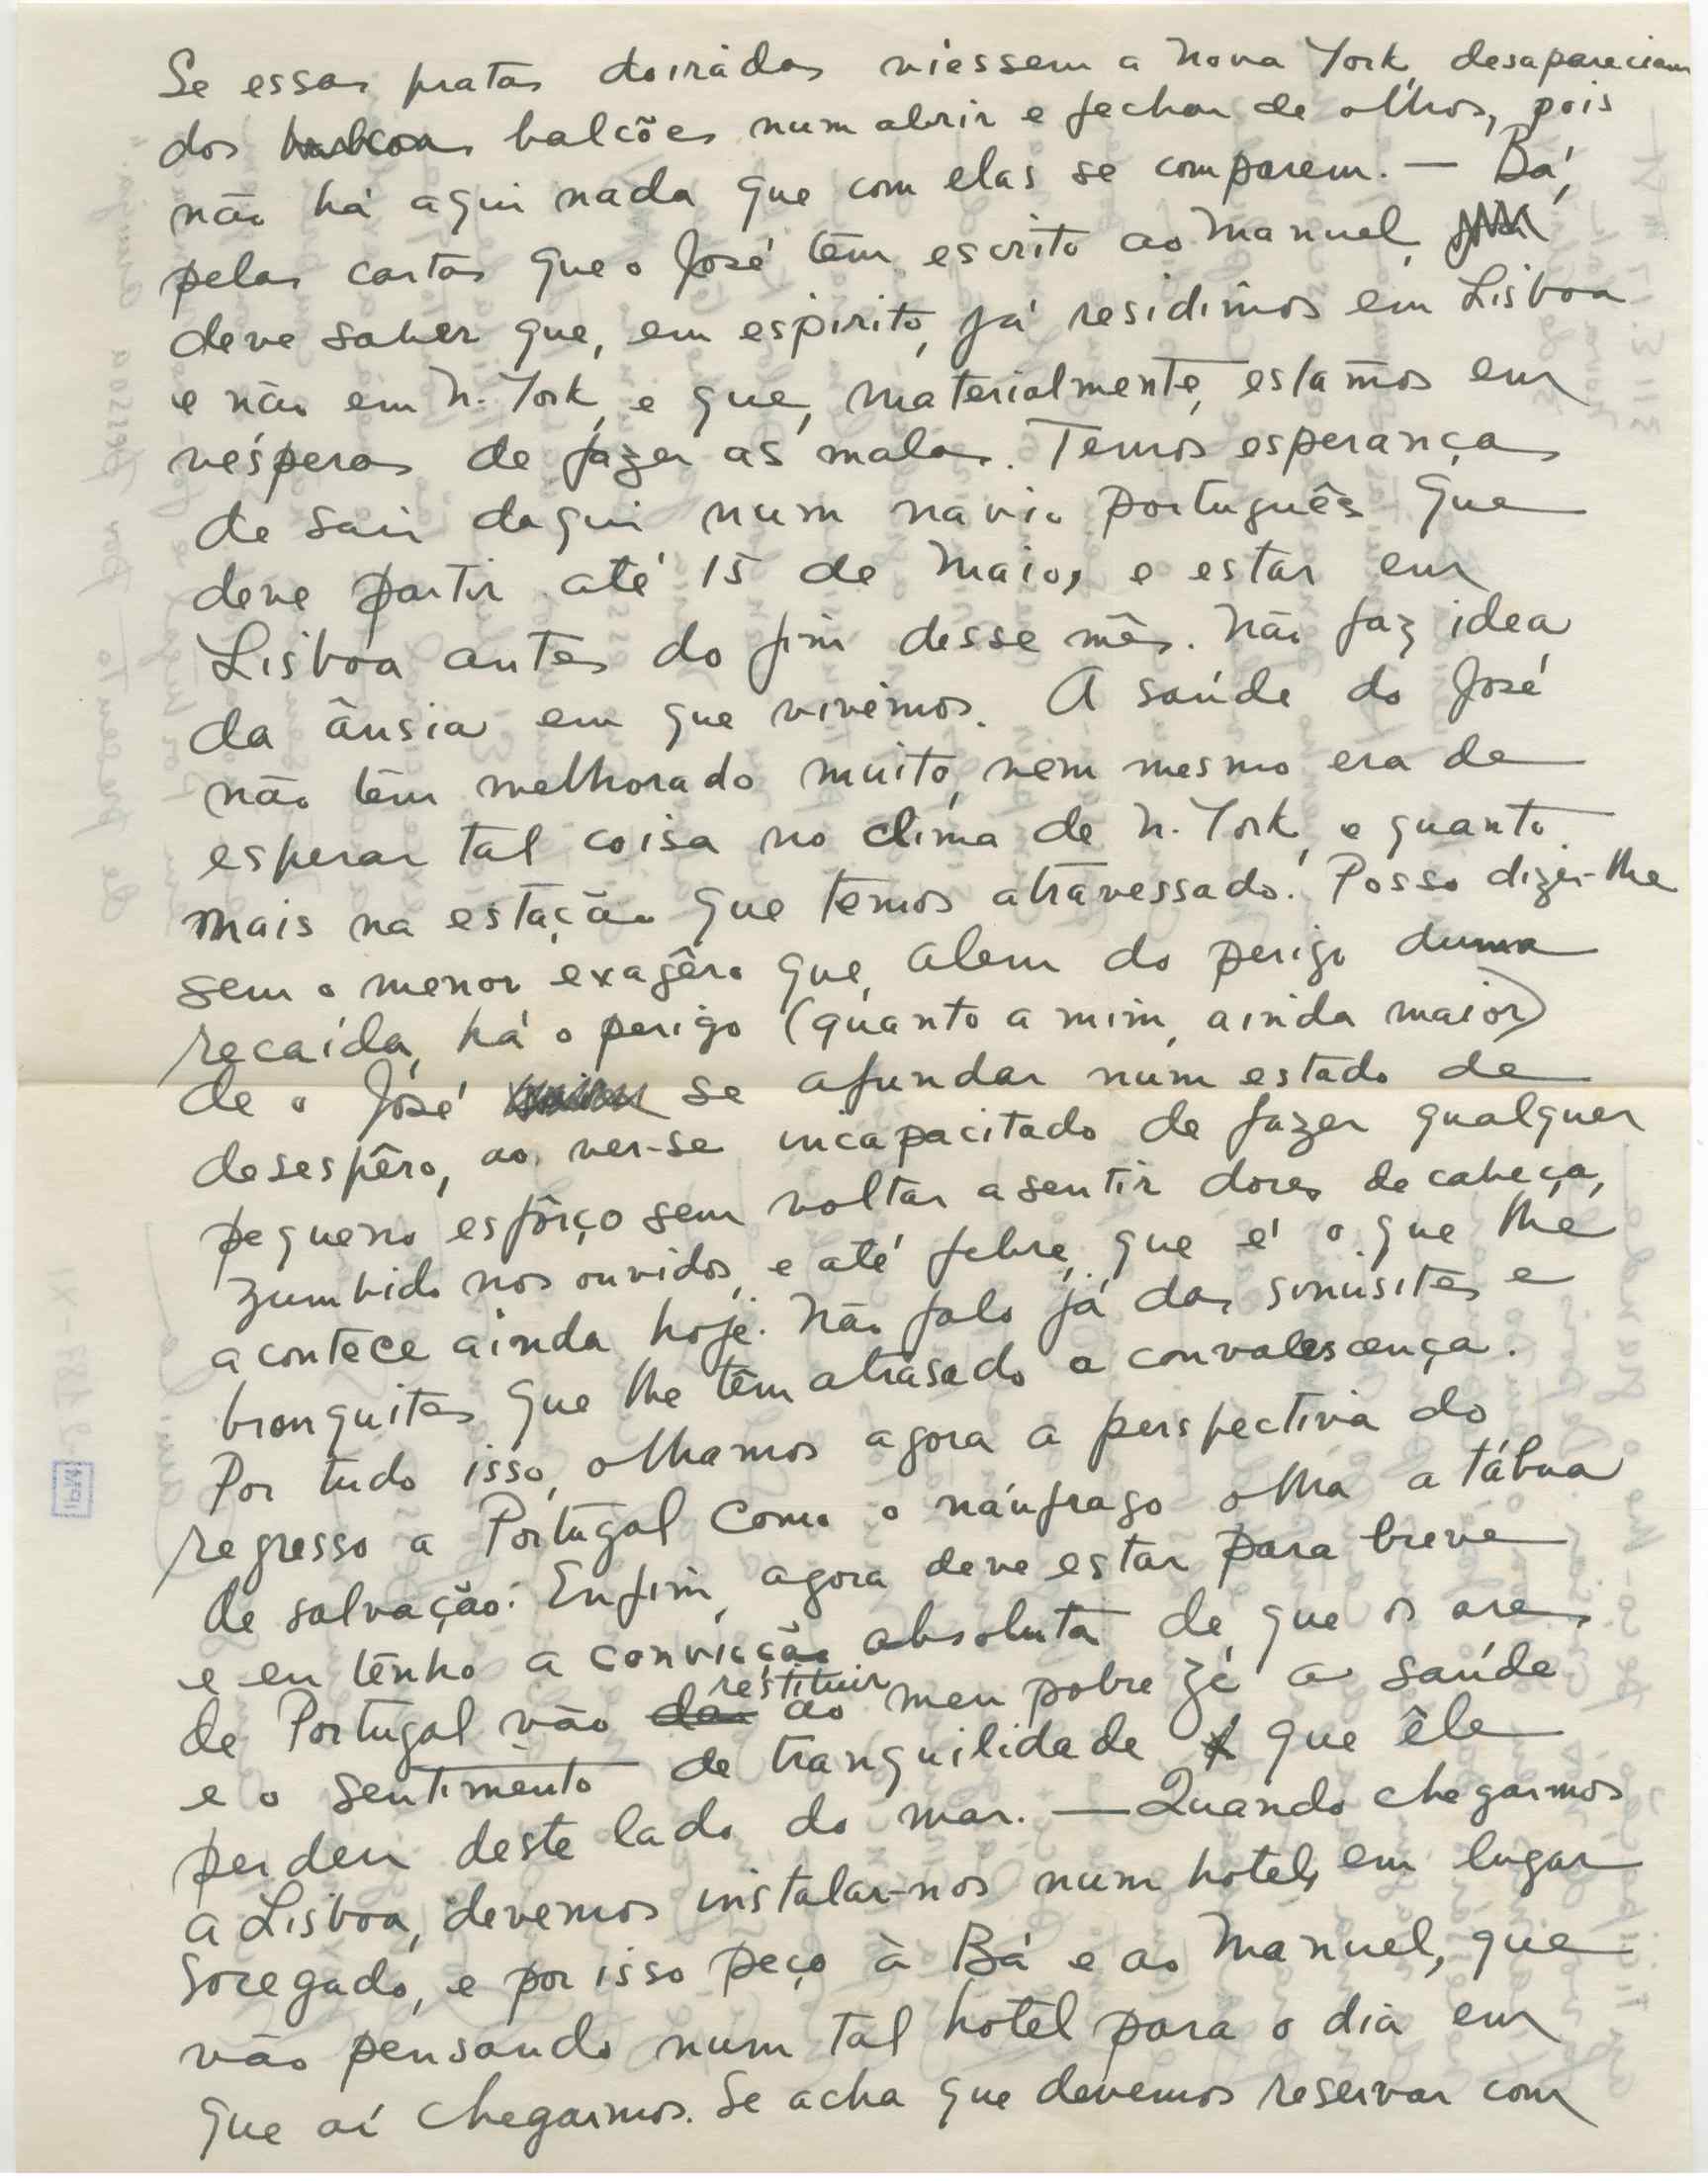 Se essas pratas doiradas viessem a Nova York, desapareciam
dos balcões num abrir e fechar de olhos, pois
não há aqui nada que com elas se comparem. — Bá,
pelas cartas que o José tem escrito ao Manuel,
deve saber que, em espirito, já residimos em Lisboa
e não em N. York, e que, materialmente, estamos em
vésperas de fazer as malas. Temos esperanças
de sair daqui num navio português que
deve partir até 15 de Maio, e estar em
Lisboa antes do fim desse mês. Não faz idea
da ânsia em que vivemos. A saúde do José
não tem melhorado muito, nem mesmo era de
esperar tal coisa no clima de N. York, e quanto
mais na estação que temos atravessado. Posso dizer-lhe
sem o menor exagêro que, alem do perigo duma
recaída, há o perigo (quanto a mim, ainda maior)
de o José se afundar num estado de
desespêro, ao ver-se incapacitado de fazer qualquer
pequeno esfôrço sem voltar a sentir dores de cabeça,
zumbido nos ouvidos, e até febre, que é o que lhe
acontece ainda hoje. Não falo já das sinusites e
bronquites que lhe têm atrasado a convalescença.
Por tudo isso, olhamos agora a perspectiva do
regresso a Portugal como o náufrago olha a tábua
de salvação. Enfim, agora deve estar para breve
e eu tenho a convicção absoluta de que os ares
de Portugal vão restituir ao meu pobre Zé a saúde
e o sentimento de tranquilidade que êle
perdeu deste lado do mar. — Quando chegarmos
a Lisboa, devemos instalar-nos num hotel, em lugar
socegado, e por isso peço à Bá e ao Manuel, que
vão pensando num tal hotel para o dia em
que aí chegarmos. Se acha que devemos reservar com